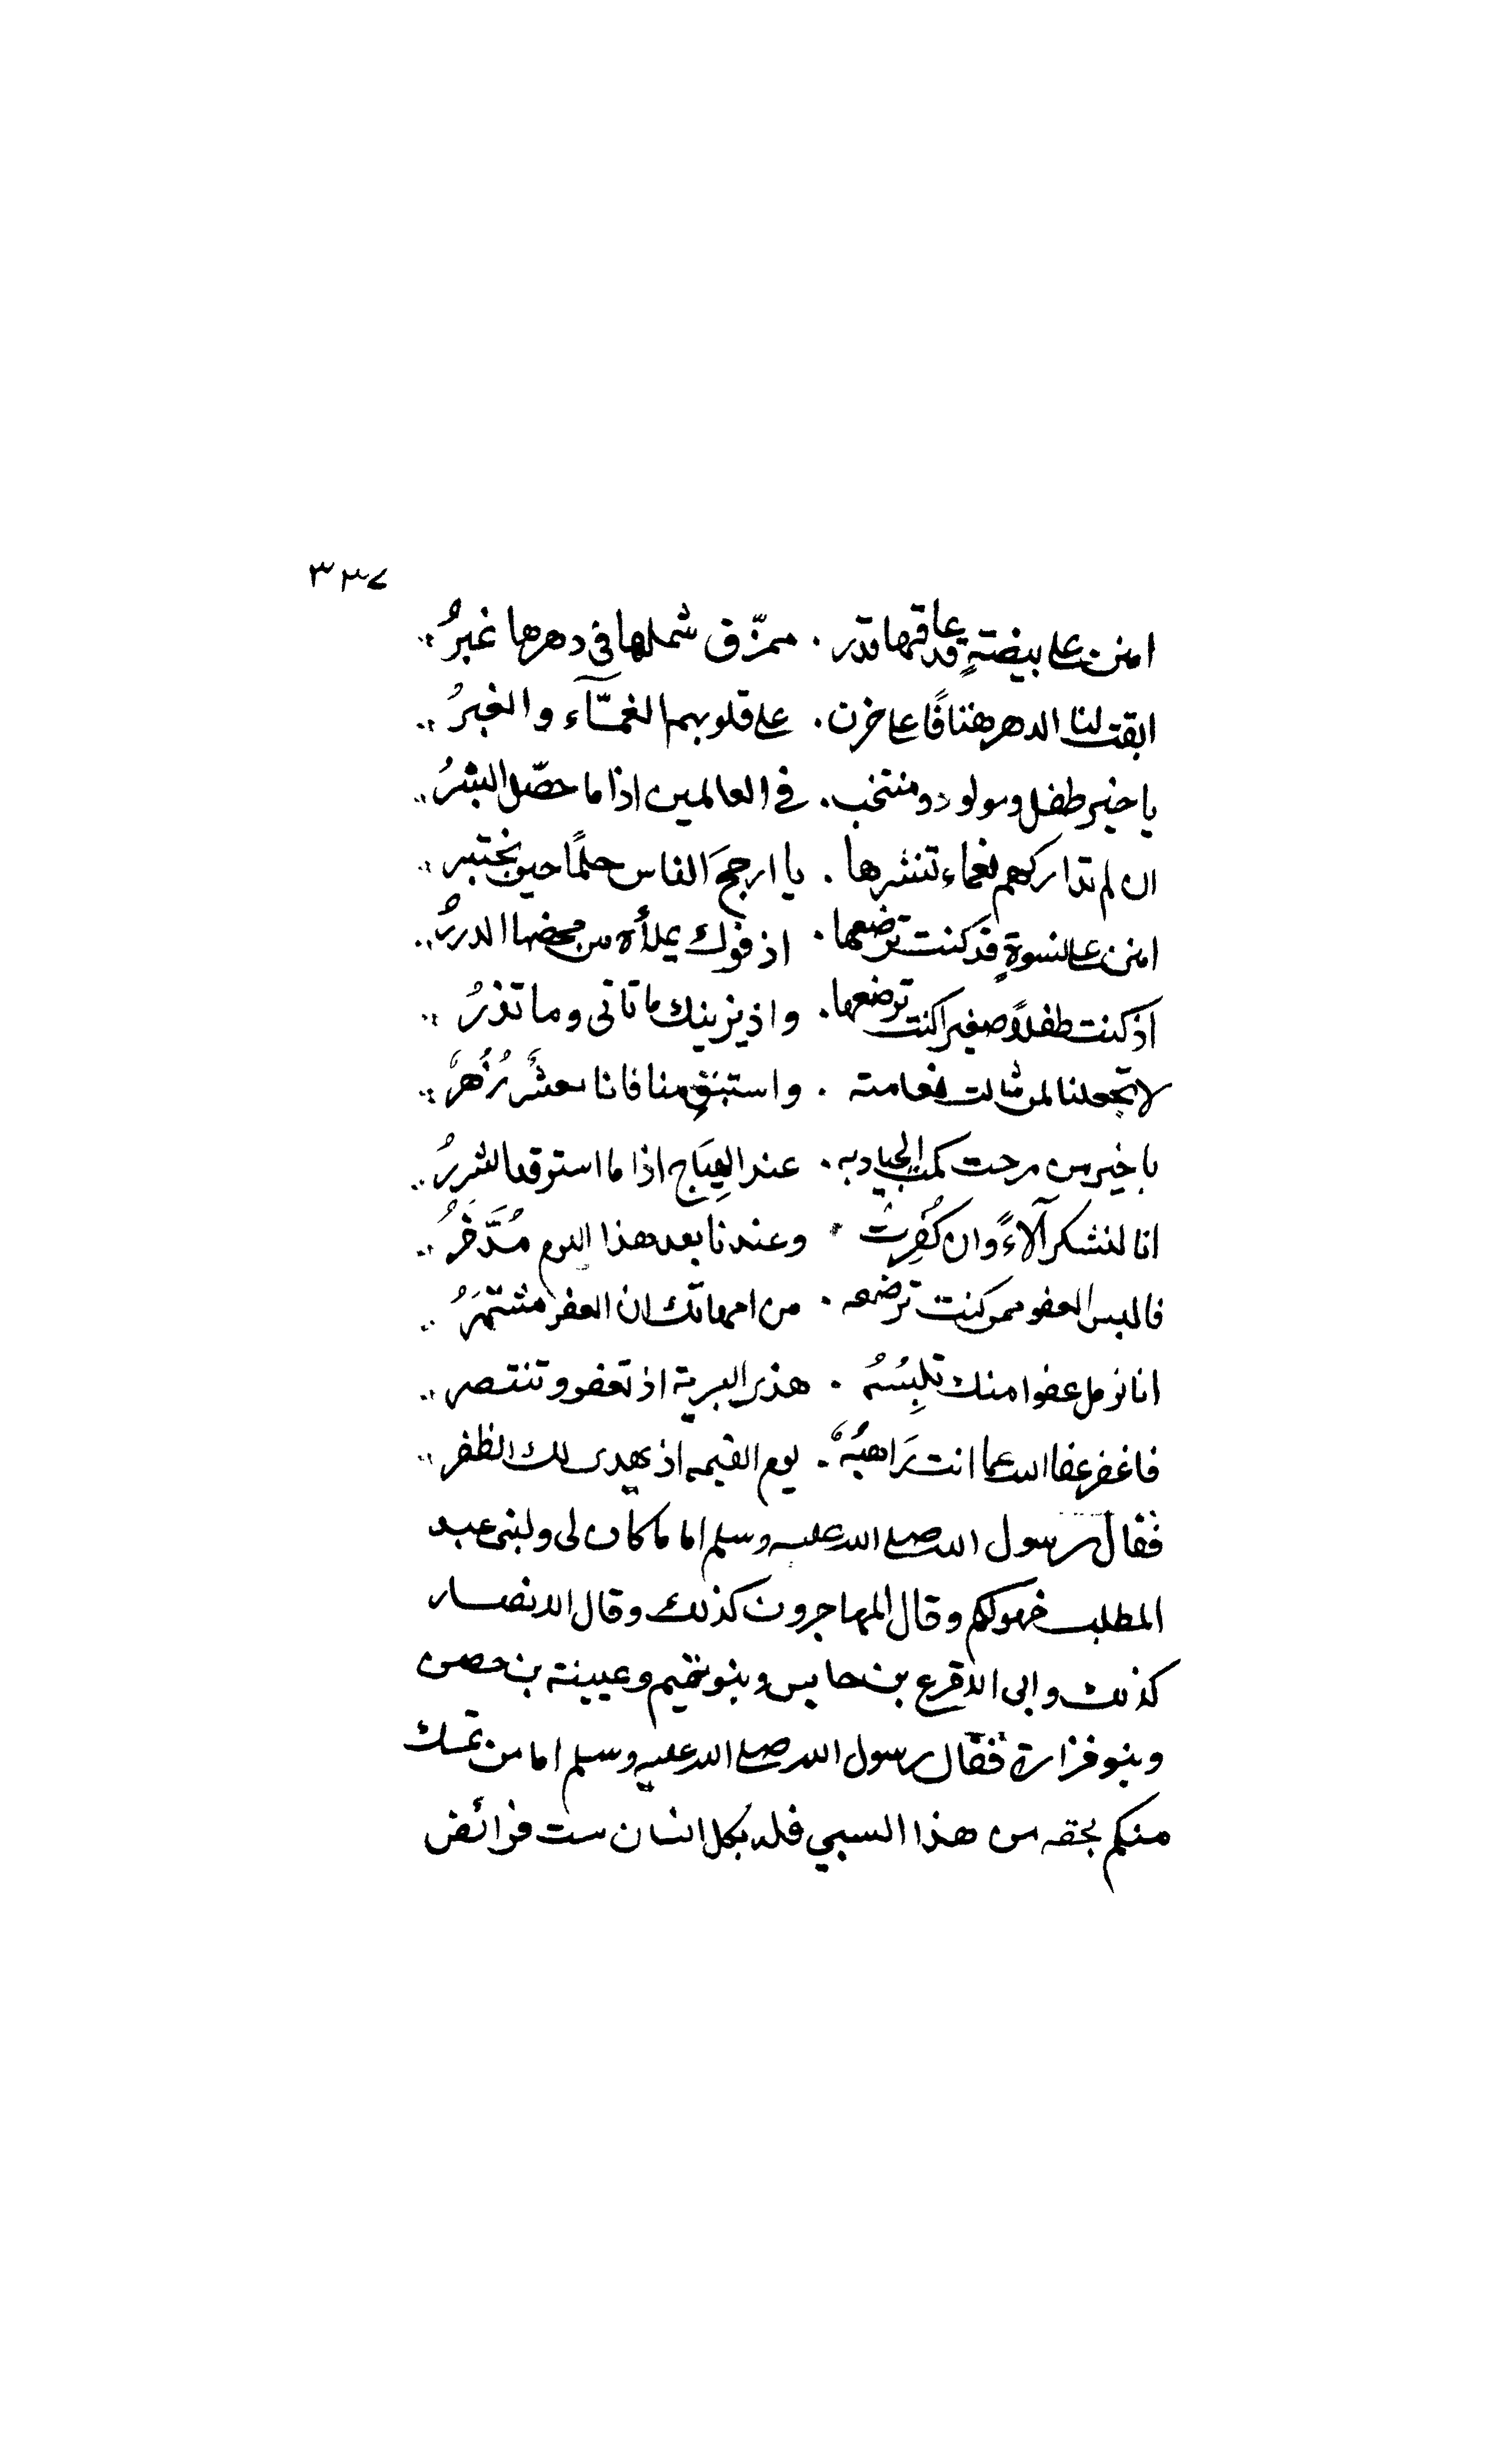 ٣٣٧
امنن على بيضةٍ قد عاقها قدر . ممزّق شملها فى دهرها غبرُ
ابقت لنا الدهر هتافًا على حزن . على قلوبهم الغمّآء والغبرُ
يا خير طفل ومولود ومنتخب . في العالمين اذا ما حصّل البشرُ
ان لم تداركهم نعماء تنشرها . يا ارجحَ الناس حلمًا حين يختبر
امنن على نسوةٍ قد كنت ترضعها . اذ فوك يملأه من محضها الدررُ
اذ كنت طفلاً صغيرا كنت ترضعها . واذ يزينك ما تاتى وما تذرُ
لا تجعلنا لمن شالت نعامته . واستبقِ منا فانا معشرٌ زُهُرٌ
يا خير من مرحت كمت الجياد به . عند الهِيَاج اذا ما استوقد الشررُ
انا لنشكر آلاءً وان كُفِرتْ . وعندنا بعد هذا اليوم مُدَّخَرُ
فالبس العفو ممن كنت ترضعه . من امهاتك ان العفو مشتهَرُ
انا نومل عفوا منك تلبِسُهُ . هذى البرية اذ تعفو وتنتصر
فاغفر عفا الله عما انت رَاهِبُهُ . يوم القيمه اذ يهدى لك الظفر
فقال رسول الله صلى الله عليه وسلم اما ما كان لى ولبنى عبد
المطلب فهو لكم وقال المهاجرون كذلك وقال الانصار
كذلك وابى الاقرع بن حابس وبنو تميم وعيينة بن حصن
وبنو فزارة فقال رسول الله صلى الله عليه وسلم اما من تمسك
منكم بحقه من هذا السبي فله بكل انسان ست فرائض